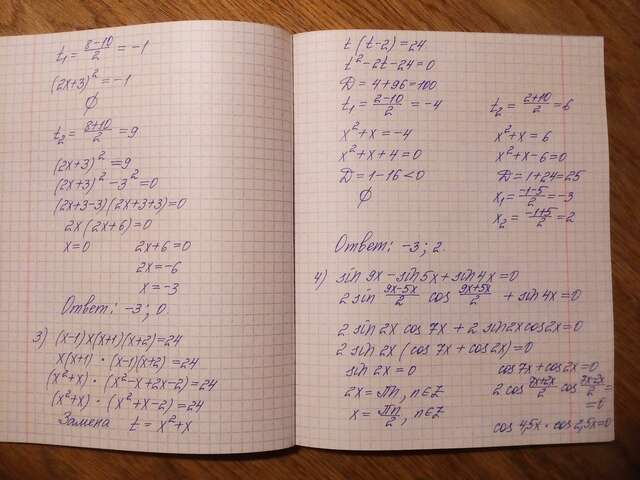 t₁ = (8-10)/2 = -1
(2x+3)² = -1
∅
t₂ = (8+10)/2 = 9
(2x+3)² = 9
(2x+3)² - 3² = 0
(2x+3-3)(2x+3+3) = 0
2x(2x+6) = 0
x = 0    2x+6 = 0
2x = -6
x = -3
Ответ: -3; 0.
3) (x-1)x(x+1)(x+2) = 24
x(x+1) · (x-1)(x+2) = 24
(x²+x) · (x²-x+2x-2) = 24
(x²+x) · (x²+x-2) = 24
Замена t = x²+x
t(t-2) = 24
t²-2t-24 = 0
D = 4+96 = 100
t₁ = (2-10)/2 = -4    t₂ = (2+10)/2 = 6
x²+x = -4    x²+x = 6
x²+x+4 = 0    x²+x-6 = 0
D = 1-16 < 0    D = 1+24 = 25
∅    x₁ = (-1-5)/2 = -3
x₂ = (-1+5)/2 = 2
Ответ: -3; 2.
4) sin 9x - sin 5x + sin 4x = 0
2 sin (9x-5x)/2 cos (9x+5x)/2 + sin 4x = 0
2 sin 2x cos 7x + 2 sin 2x cos 2x = 0
2 sin 2x (cos 7x + cos 2x) = 0
sin 2x = 0    cos 7x + cos 2x = 0
2x = πn, n∈Z    2 cos (7x+2x)/2 cos (7x-2x)/2 =
= 0
x = πn/2, n∈Z
cos 4,5x · cos 2,5x = 0